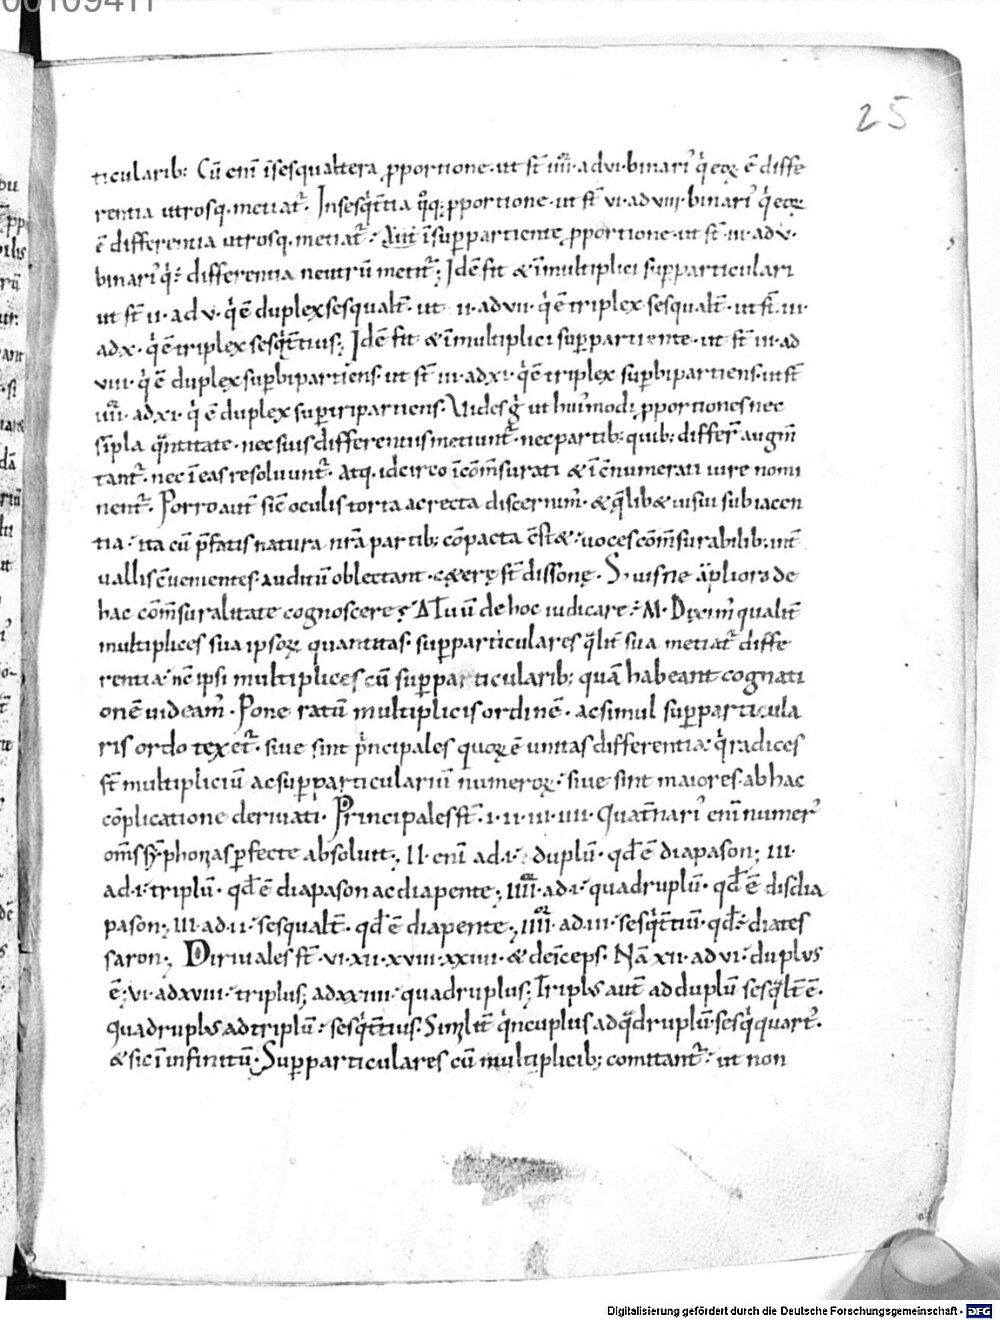 25
ticularib; Cū eni ī sesqualtera pportione. ut st̄ IIII. ad VI. binari' q̇ eoꝝ ē diffe
rentia utrosq. metiat̄. In sesq̇t̄tia qͦq; pportione. ut st̄ VI. ad VIII. binari' q̇ eoꝝ
ē differentia utrosq. metiat̄. Aut ī suppartiente pportione. ut st̄ III. ad V.
binari' q̇ ē differentia neutrū metit̄; Idē fit & ī multiplici supparticulari
ut st̄ II. ad V. q̇ ē duplex sesqualt̄. ut II. ad VII. q̇ ē triplex sesqualt̄. ut st̄ III.
ad X. q̇ ē triplex sesq̇t̄tius; Idē fit & ī multiplici suppartiente. ut st̄ III. ad
VIII. q̇ ē duplex supbipartiens. ut st̄ III. ad XI. q̇ ē triplex supbipartiens. ut st̄
IIII. ad XI. q̇ ē duplex suptripartiens. Vides g̊ ut hui'modi pportiones nec
sīpla q̄ntitate. nec suis differentiis metiunt̄. nec partib; quib; differt̄ augm̄
tant̄. nec ī eas resoluunt̄. Atq. idcirco īcōm̄surati & īc̄numerati iure nomi
nent̄. Porro aut̄ sic oculis torta ac recta discernim'. & q̄lib& uisui subiacen
tia. ita cū p̄fatis natura nr̄a partib; cōpacta c̄st&. uoces cōm̄surabilib; int̄
uallis c̄uenientes. auditū oblectant. c&erę st̄ dissonę. Δ. uisne āpliora de
hac cōm̄suralitate cognoscere; Δ Tuū de hoc iudicare. M. Dixim' qualit̄
multiplices sua ipsoꝝ quantitas. supparticulares q̄lit̄ sua metiat̄ diffe
rentia. nc̄ ipsi multiplices cū supparticularib; quā habeant cognati
onē uideam'. Pone ratū multiplicis ordinē. ac simul supparticula
ris ordo texet̄. siue sint p̄ncipales quoꝝ ē unitas differentia. q̇ radices
st̄ multipliciū ac supparticulariū numeroꝝ. siue sint maiores. ab hac
cōplicatione deriuati. Principales st̄. I. II. III. IIII. Quat̄nari' eni numer'
om̄s sȳphonias pfecte absoluit; II. eni ad. I. duplū. qd̄ ē diapason; III.
ad. I. triplū. qd̄ ē diapason ac diapente; IIII. ad. I. quadruplū. qd̄ ē disdia
pason; III. ad. II. sesqualt̄. qd̄ ē diapente; IIII. ad. III. sesq̇t̄tiū. qd̄ ē diates
saron; Diriuales st̄. VI. XII. XVIII. XXIIII. & deīceps. Nā XII. ad VI. duplus
ē; VI. ad XVIII. triplus; ad XXIIII. quadruplus; Triplus aut̄ ad duplū sesq̄lt̄ ē.
quadruplus ad triplū. sesq̇t̄tius. Similit̄ q̇ncuplus ad q̄druplū. sesq̇quart'.
& sic ī infinitū. Supparticulares cū multiplicib; comitant̄. ut non
Digitalisierung gefördert durch die Deutsche Forschungsgemeinschaft - DFG